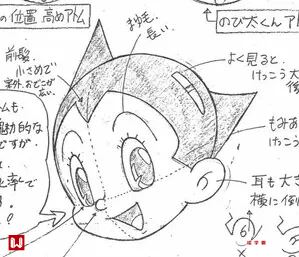 の位置 高めアトム
のび太くんア
まゆ毛
長い。
前髪
小さめで
案外、おでこが
広い。
よく見ると、
けっこう大
後
トムも
動的な
ですが
もみあ
けっこう
率で
!
耳も大き
横に倒